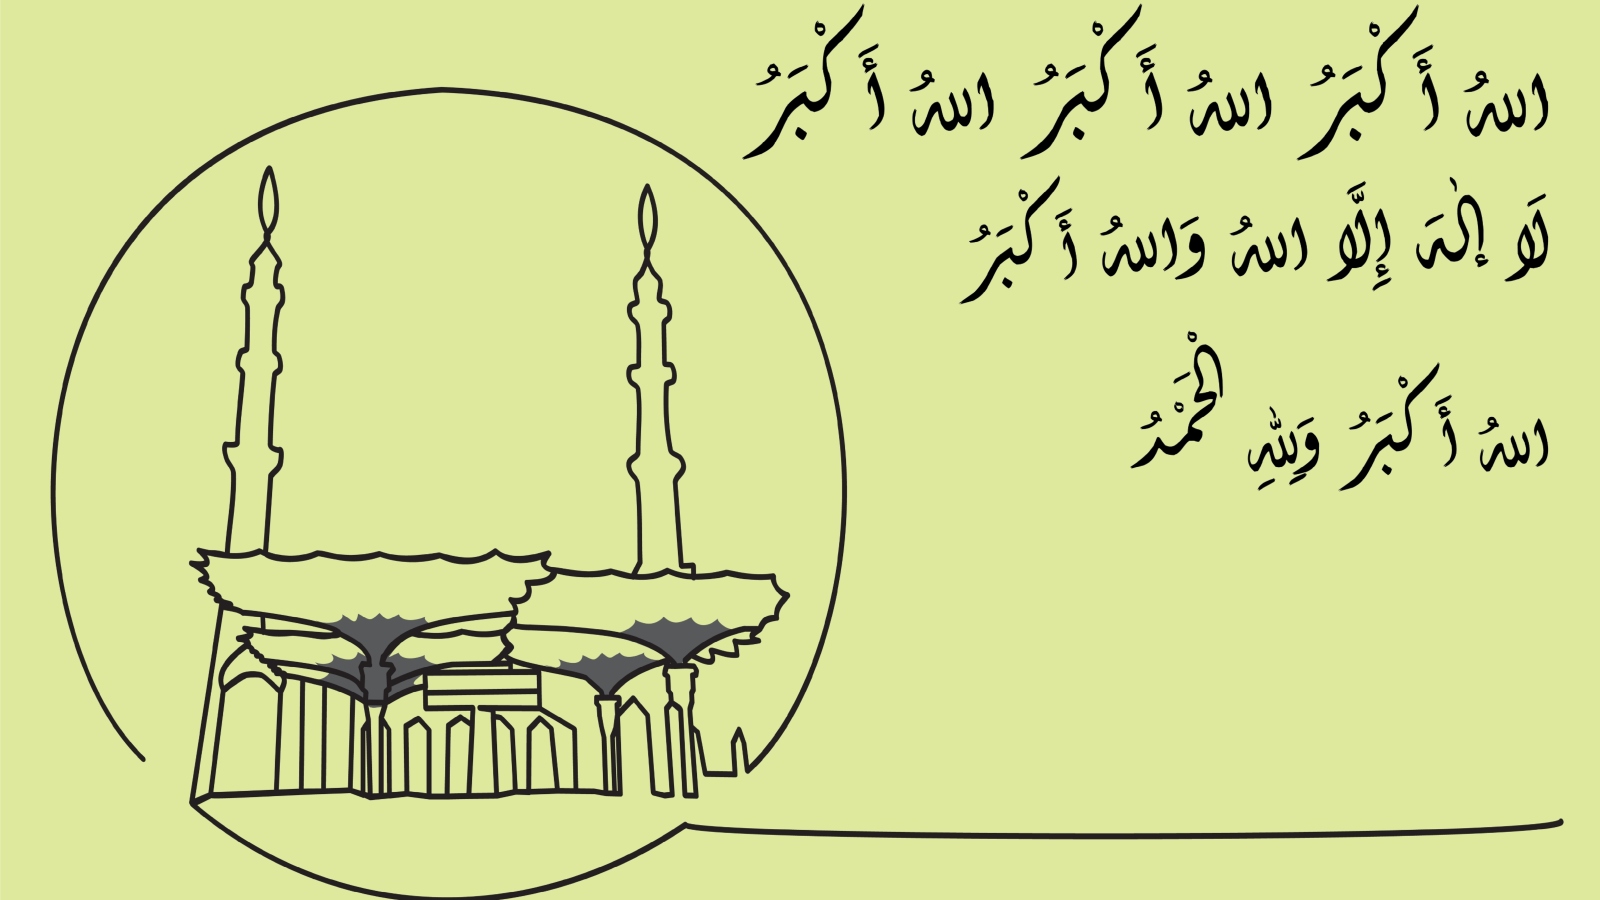 اللهُ أَكْبَرُ اللهُ أَكْبَرُ اللهُ أَكْبَرُ
لَا إِلٰهَ إِلَّا اللهُ وَاللهُ أَكْبَرُ
اللهُ أَكْبَرُ وَلِلّٰهِ الْحَمْدُ